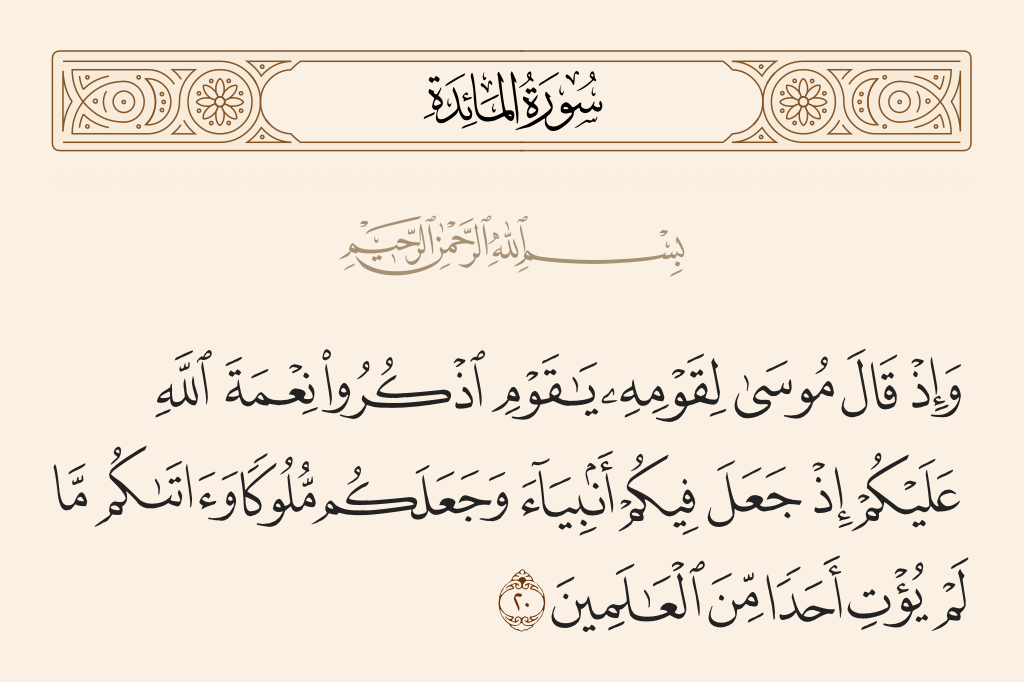 سُورَةُ المَائِدَةِ
بِسْمِ ٱللَّهِ ٱلرَّحْمَٰنِ ٱلرَّحِيمِ
وَإِذْ قَالَ مُوسَىٰ لِقَوْمِهِۦ يَـٰقَوْمِ ٱذْكُرُوا۟ نِعْمَةَ ٱللَّهِ
عَلَيْكُمْ إِذْ جَعَلَ فِيكُمْ أَنۢبِيَآءَ وَجَعَلَكُم مُّلُوكًا وَءَاتَىٰكُم مَّا
لَمْ يُؤْتِ أَحَدًا مِّنَ ٱلْعَـٰلَمِينَ ٢٠